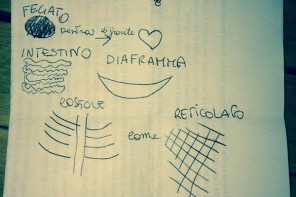 FEGATO
destra
INTESTINO
DIAFRAMMA
COSTOLE
come
RETICOLATO